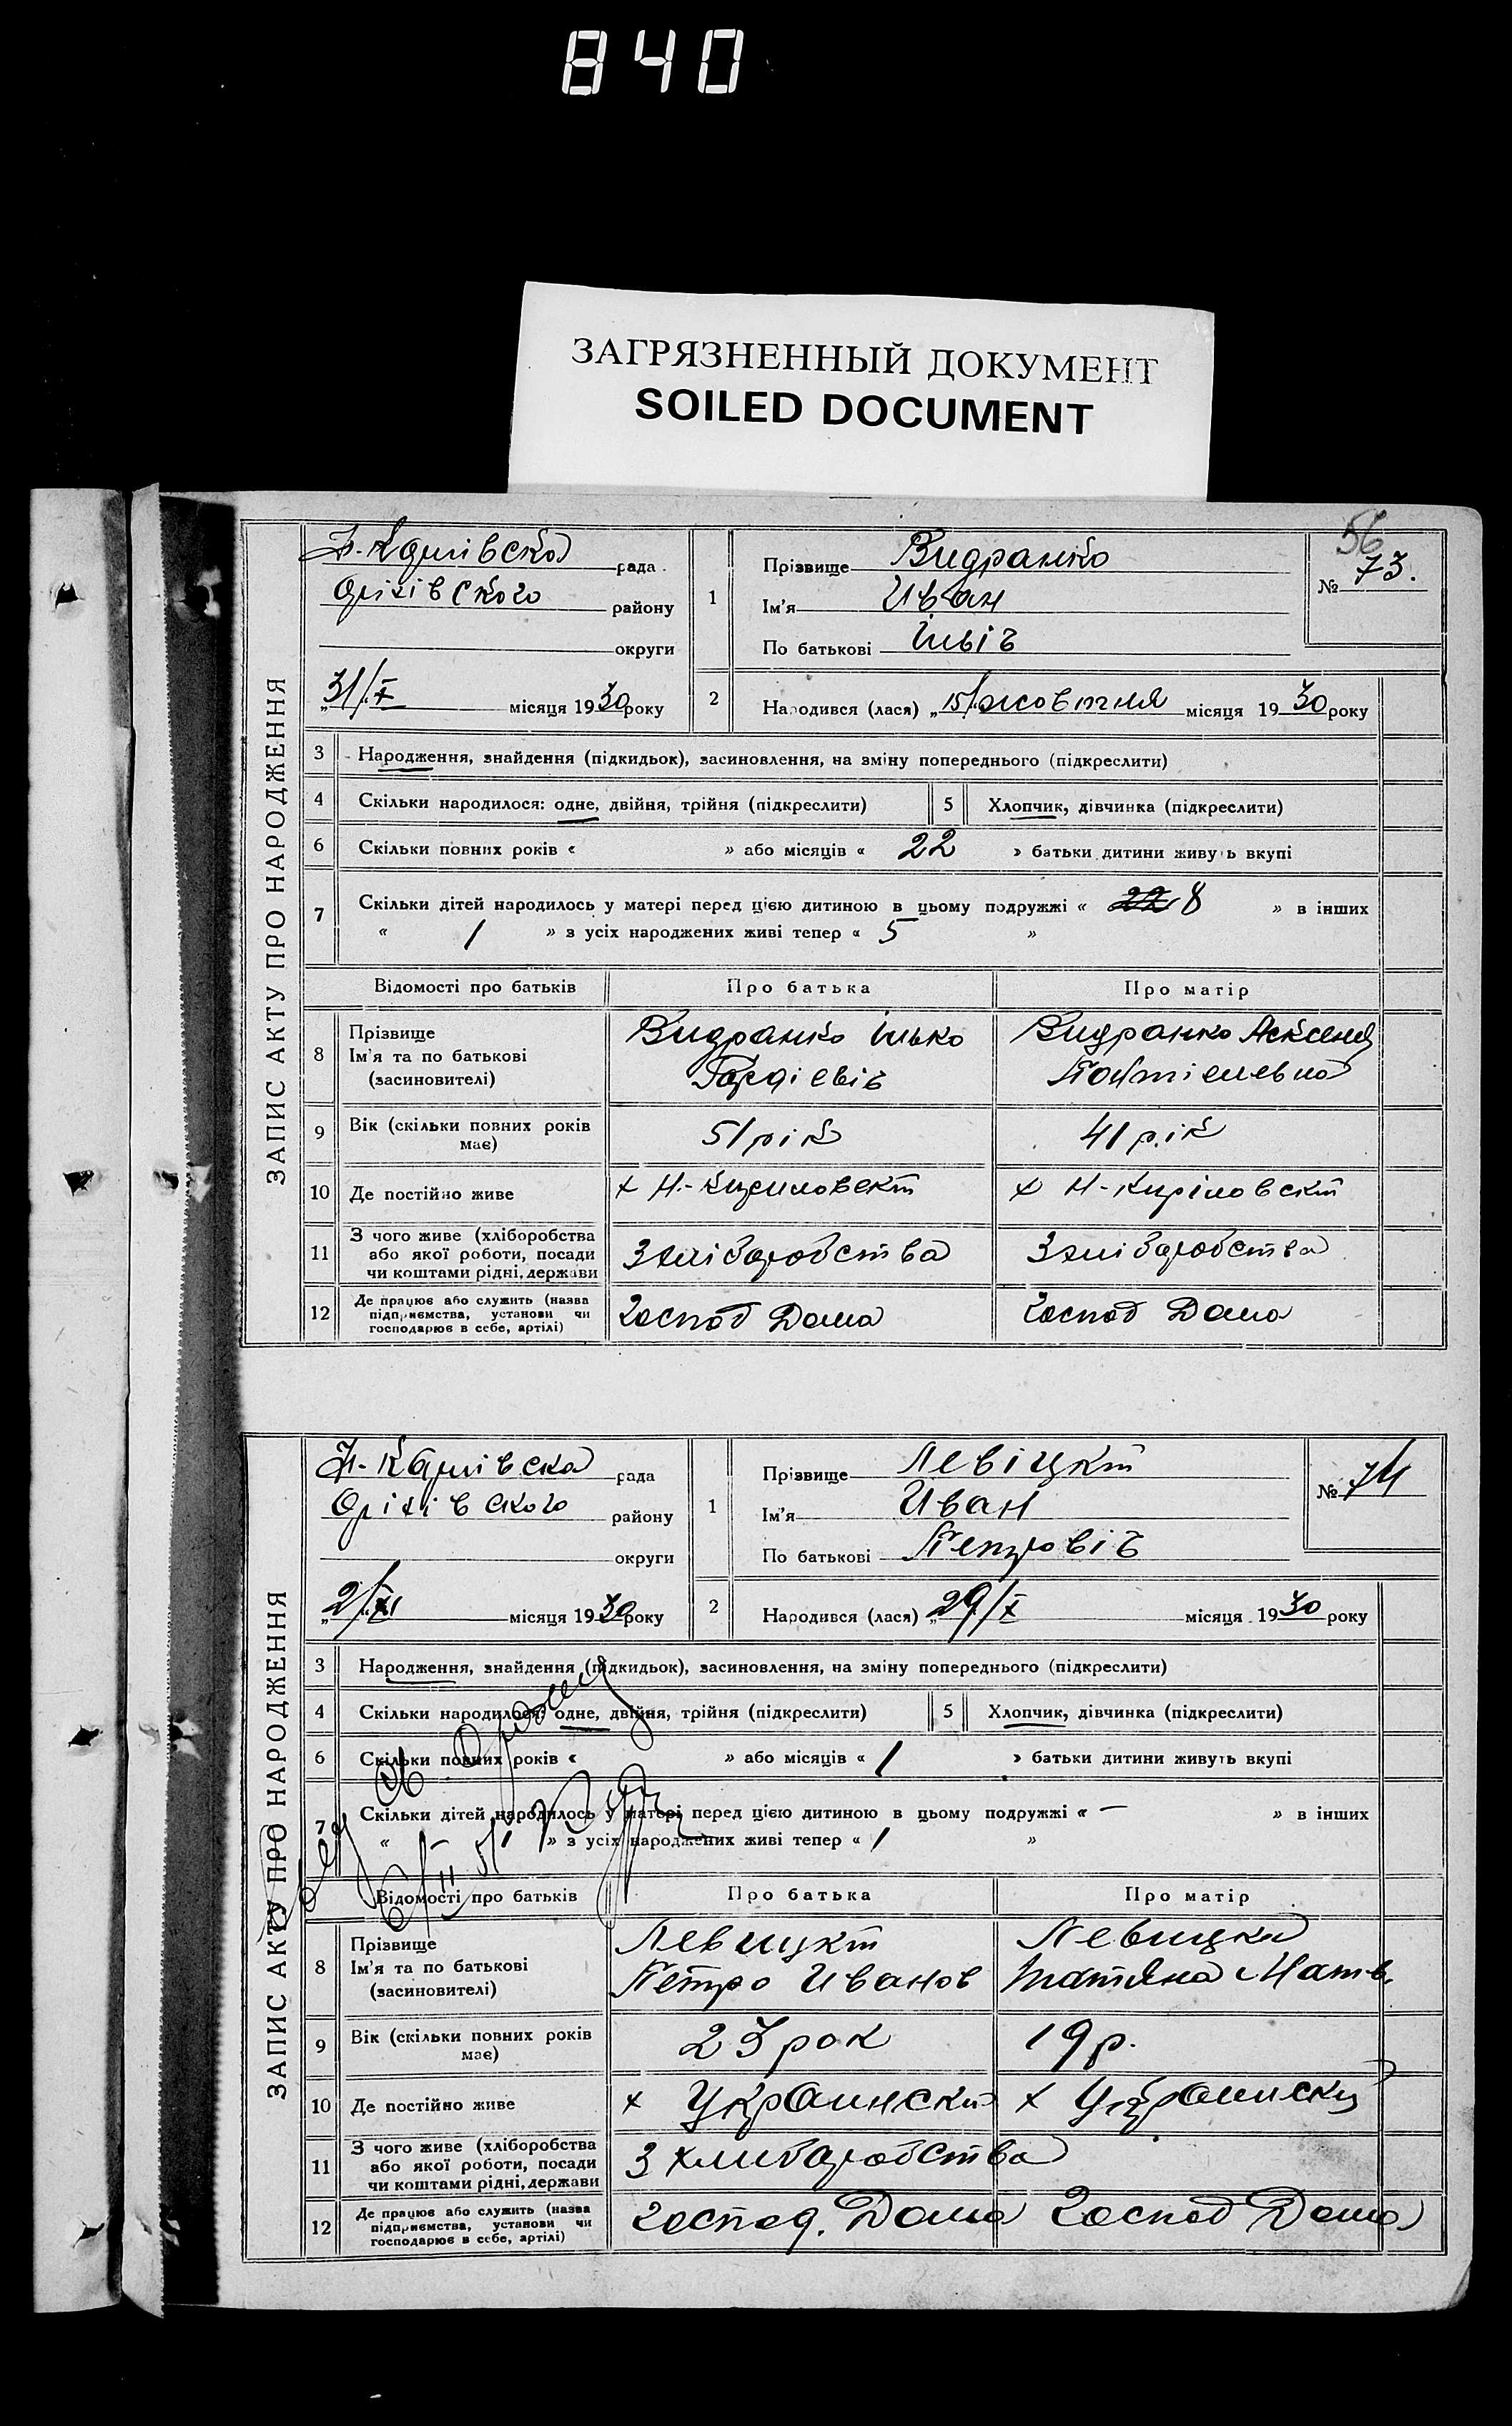 840
ЗАГРЯЗНЕННЫЙ ДОКУМЕНТ
SOILED DOCUMENT
56
ЗАПИС АКТУ ПРО НАРОДЖЕННЯ
Н-Карлівска рада
Оріхівского району
округи
„31/X місяця 1930 року
1
Прізвище Видранко
Ім'я Иван
По батькові Ільіч
№ 73.
2
Народився (лася) „15/жовтня місяця 1930 року
3 Народження, знайдення (підкидьок), засиновлення, на зміну попереднього (підкреслити)
4 Скільки народилося: одне, двійня, трійня (підкреслити) 5 Хлопчик, дівчинка (підкреслити)
6 Скільки повних років « » або місяців « 22 » батьки дитини живуть вкупі
7 Скільки дітей народилось у матері перед цією дитиною в цьому подружжі « 22 8 » в інших
« 1 » з усіх народжених живі тепер « 5 »
Відомості про батьків Про батька Про матір
8 Прізвище
Ім'я та по батькові
(засиновителі)
Видранко Ілько
Гордіевіч
Видранко
9 Вік (скільки повних років має) 51 рік 41 рік
10 Де постійно живе х Н-Кириловскт х Н-Кріловскт
11 З чого живе (хліборобства
або якої роботи, посади
чи коштами рідні, держави
З хліборобства З хліборобства
12 Де працює або служить (назва
підприємства, установи чи
господарює в себе, артілі)
Господ Дома Господ Дома
ЗАПИС АКТУ ПРО НАРОДЖЕННЯ
Н-Карлівска рада
Оріхівского району
округи
„2/XI місяця 1930 року
1
Прізвище Левіцкт
Ім'я Иван
По батькові Петровіч
№ 74
2
Народився (лася) „29/X місяця 1930 року
3 Народження, знайдення (підкидьок), засиновлення, на зміну попереднього (підкреслити)
4 Скільки народилося: одне, двійня, трійня (підкреслити) 5 Хлопчик, дівчинка (підкреслити)
6 Скільки повних років « » або місяців « 1 » батьки дитини живуть вкупі
7 Скільки дітей народилось у матері перед цією дитиною в цьому подружжі « — » в інших
« » з усіх народжених живі тепер « 1 »
Відомості про батьків Про батька Про матір
8 Прізвище
Ім'я та по батькові
(засиновителі)
Левицкт
Петро Иванов
Левицка
Татяна Матв.
9 Вік (скільки повних років має) 23 рок 19 р.
10 Де постійно живе х Украински х Украински
11 З чого живе (хліборобства
або якої роботи, посади
чи коштами рідні, держави
З хлиборобства
12 Де працює або служить (назва
підприємства, установи чи
господарює в себе, артілі)
Господ. Дома Господ Дома